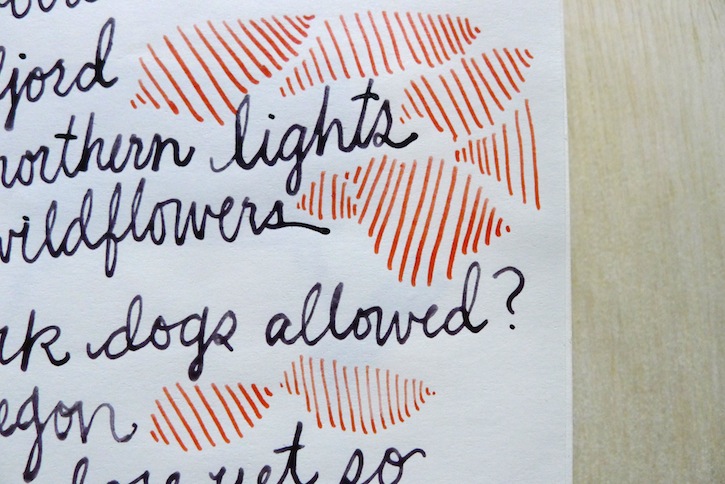 fjord
northern lights
wildflowers
dogs allowed?
yet so